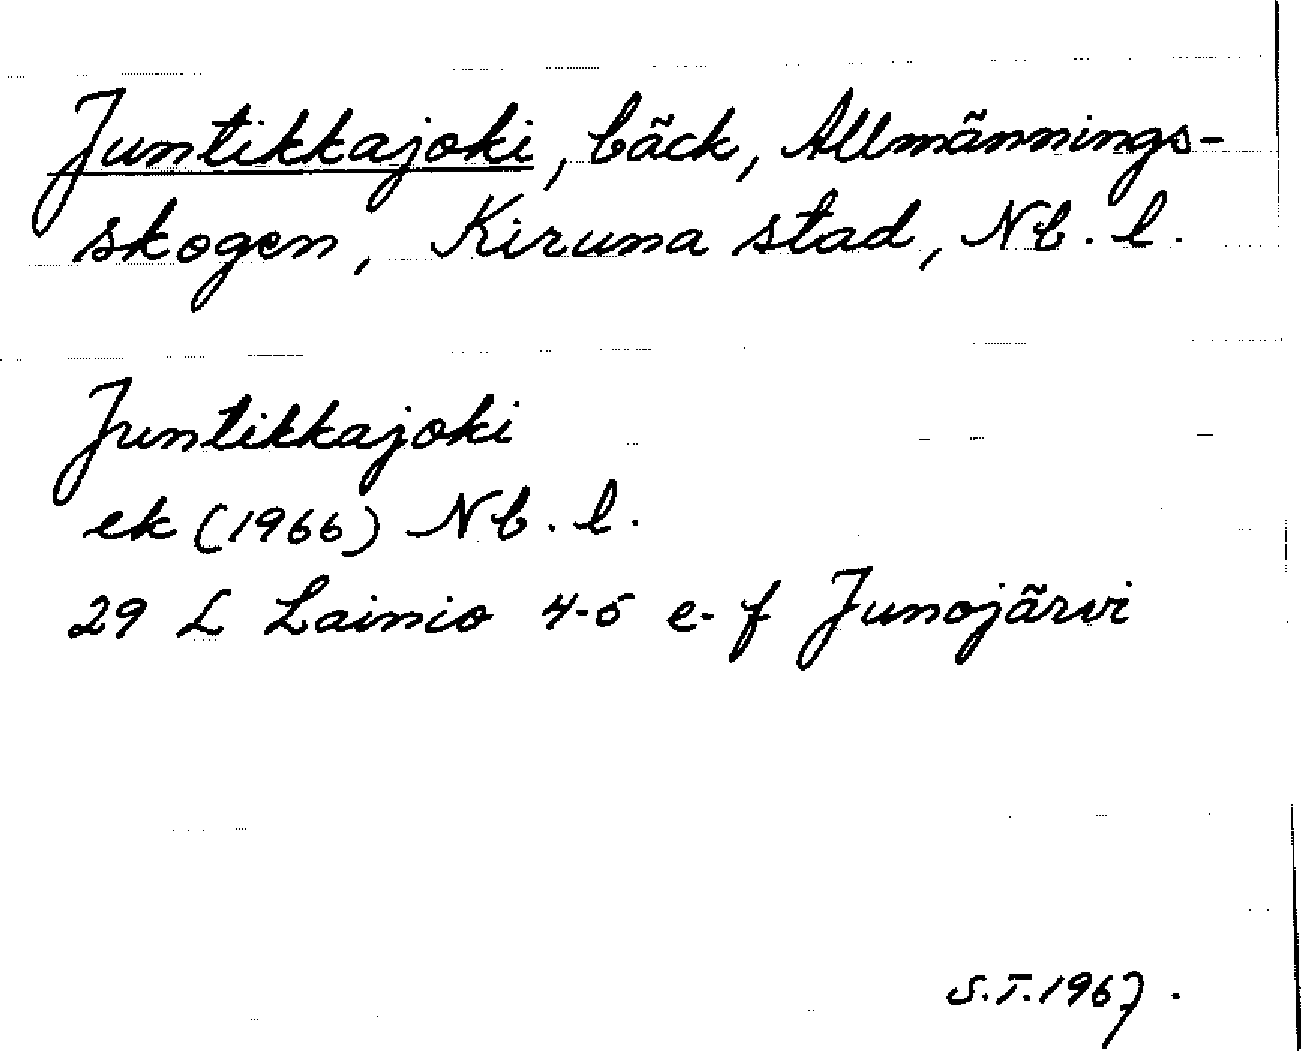 Juntikkajoki, bäck, Allmännings-
skogen, Kiruna stad, Nb. l.
Juntikkajoki
ek (1966) Nb. l.
29 L Lainio 4-5 e-f Junojärvi
S.T. 1967.